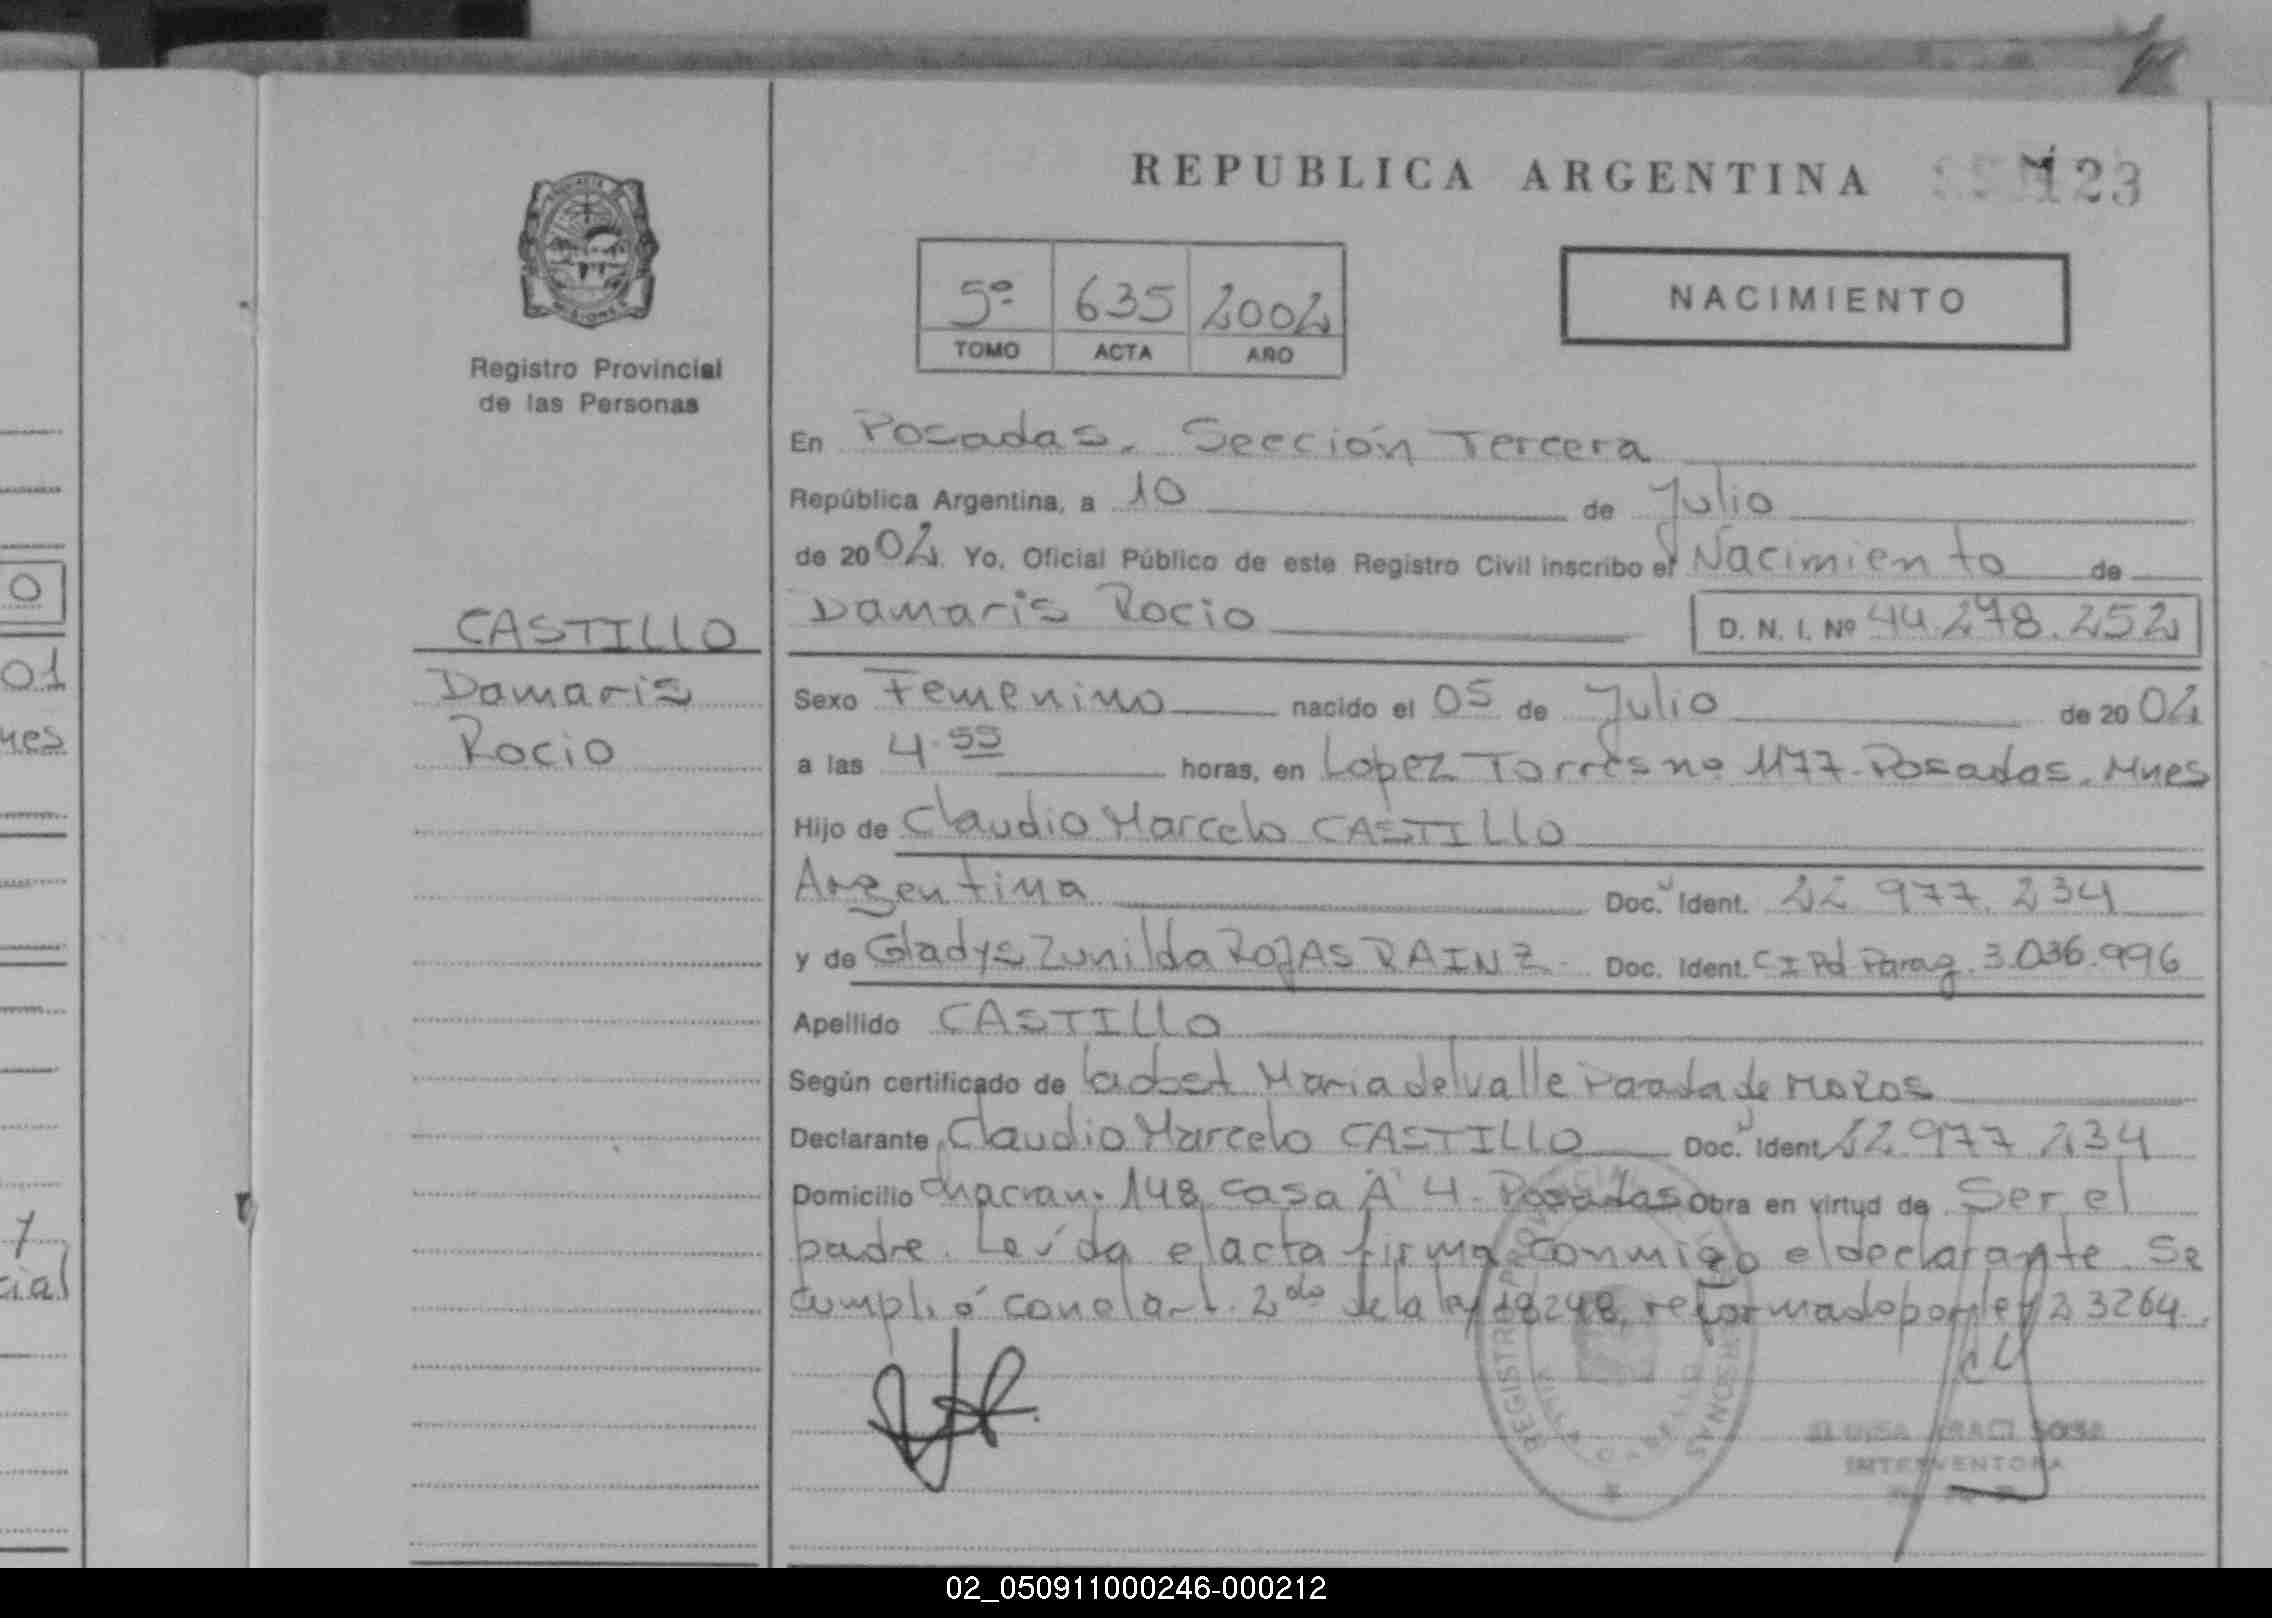 REPUBLICA ARGENTINA 123
5º 635 2002
TOMO ACTA AÑO
NACIMIENTO
Registro Provincial
de las Personas
En Posadas. Sección Tercera
República Argentina, a 10 de Julio
de 2002. Yo, Oficial Público de este Registro Civil inscribo el Nacimiento de
Damaris Rocio D. N. I. Nº 44.278.252
CASTILLO
Damaris
Rocio
Sexo Femenino nacido el 05 de Julio de 2002
a las 4.55 horas, en Lopez Torres nº 1177. Posadas. Mnes
Hijo de Claudio Marcelo CASTILLO
Argentina Doc. Ident. 22 977. 234
y de Gladys Zunilda ROJAS RAINZ. Doc. Ident. C I Pol Parag. 3.036.996
Apellido CASTILLO
Según certificado de Maria del Valle de
Declarante Claudio Marcelo CASTILLO Doc. Ident 22.977 234
Domicilio 148 casa A 4. Posadas Obra en virtud de Ser el
padre. Leída el acta firma conmigo el declarante. Se
cumplió con el art. 2do de la ley 18248 reformado por ley 23264.
REGISTR PERSONAS
SOSA
INTERVENTORA
02_050911000246-000212
O
01
nes
7
cial